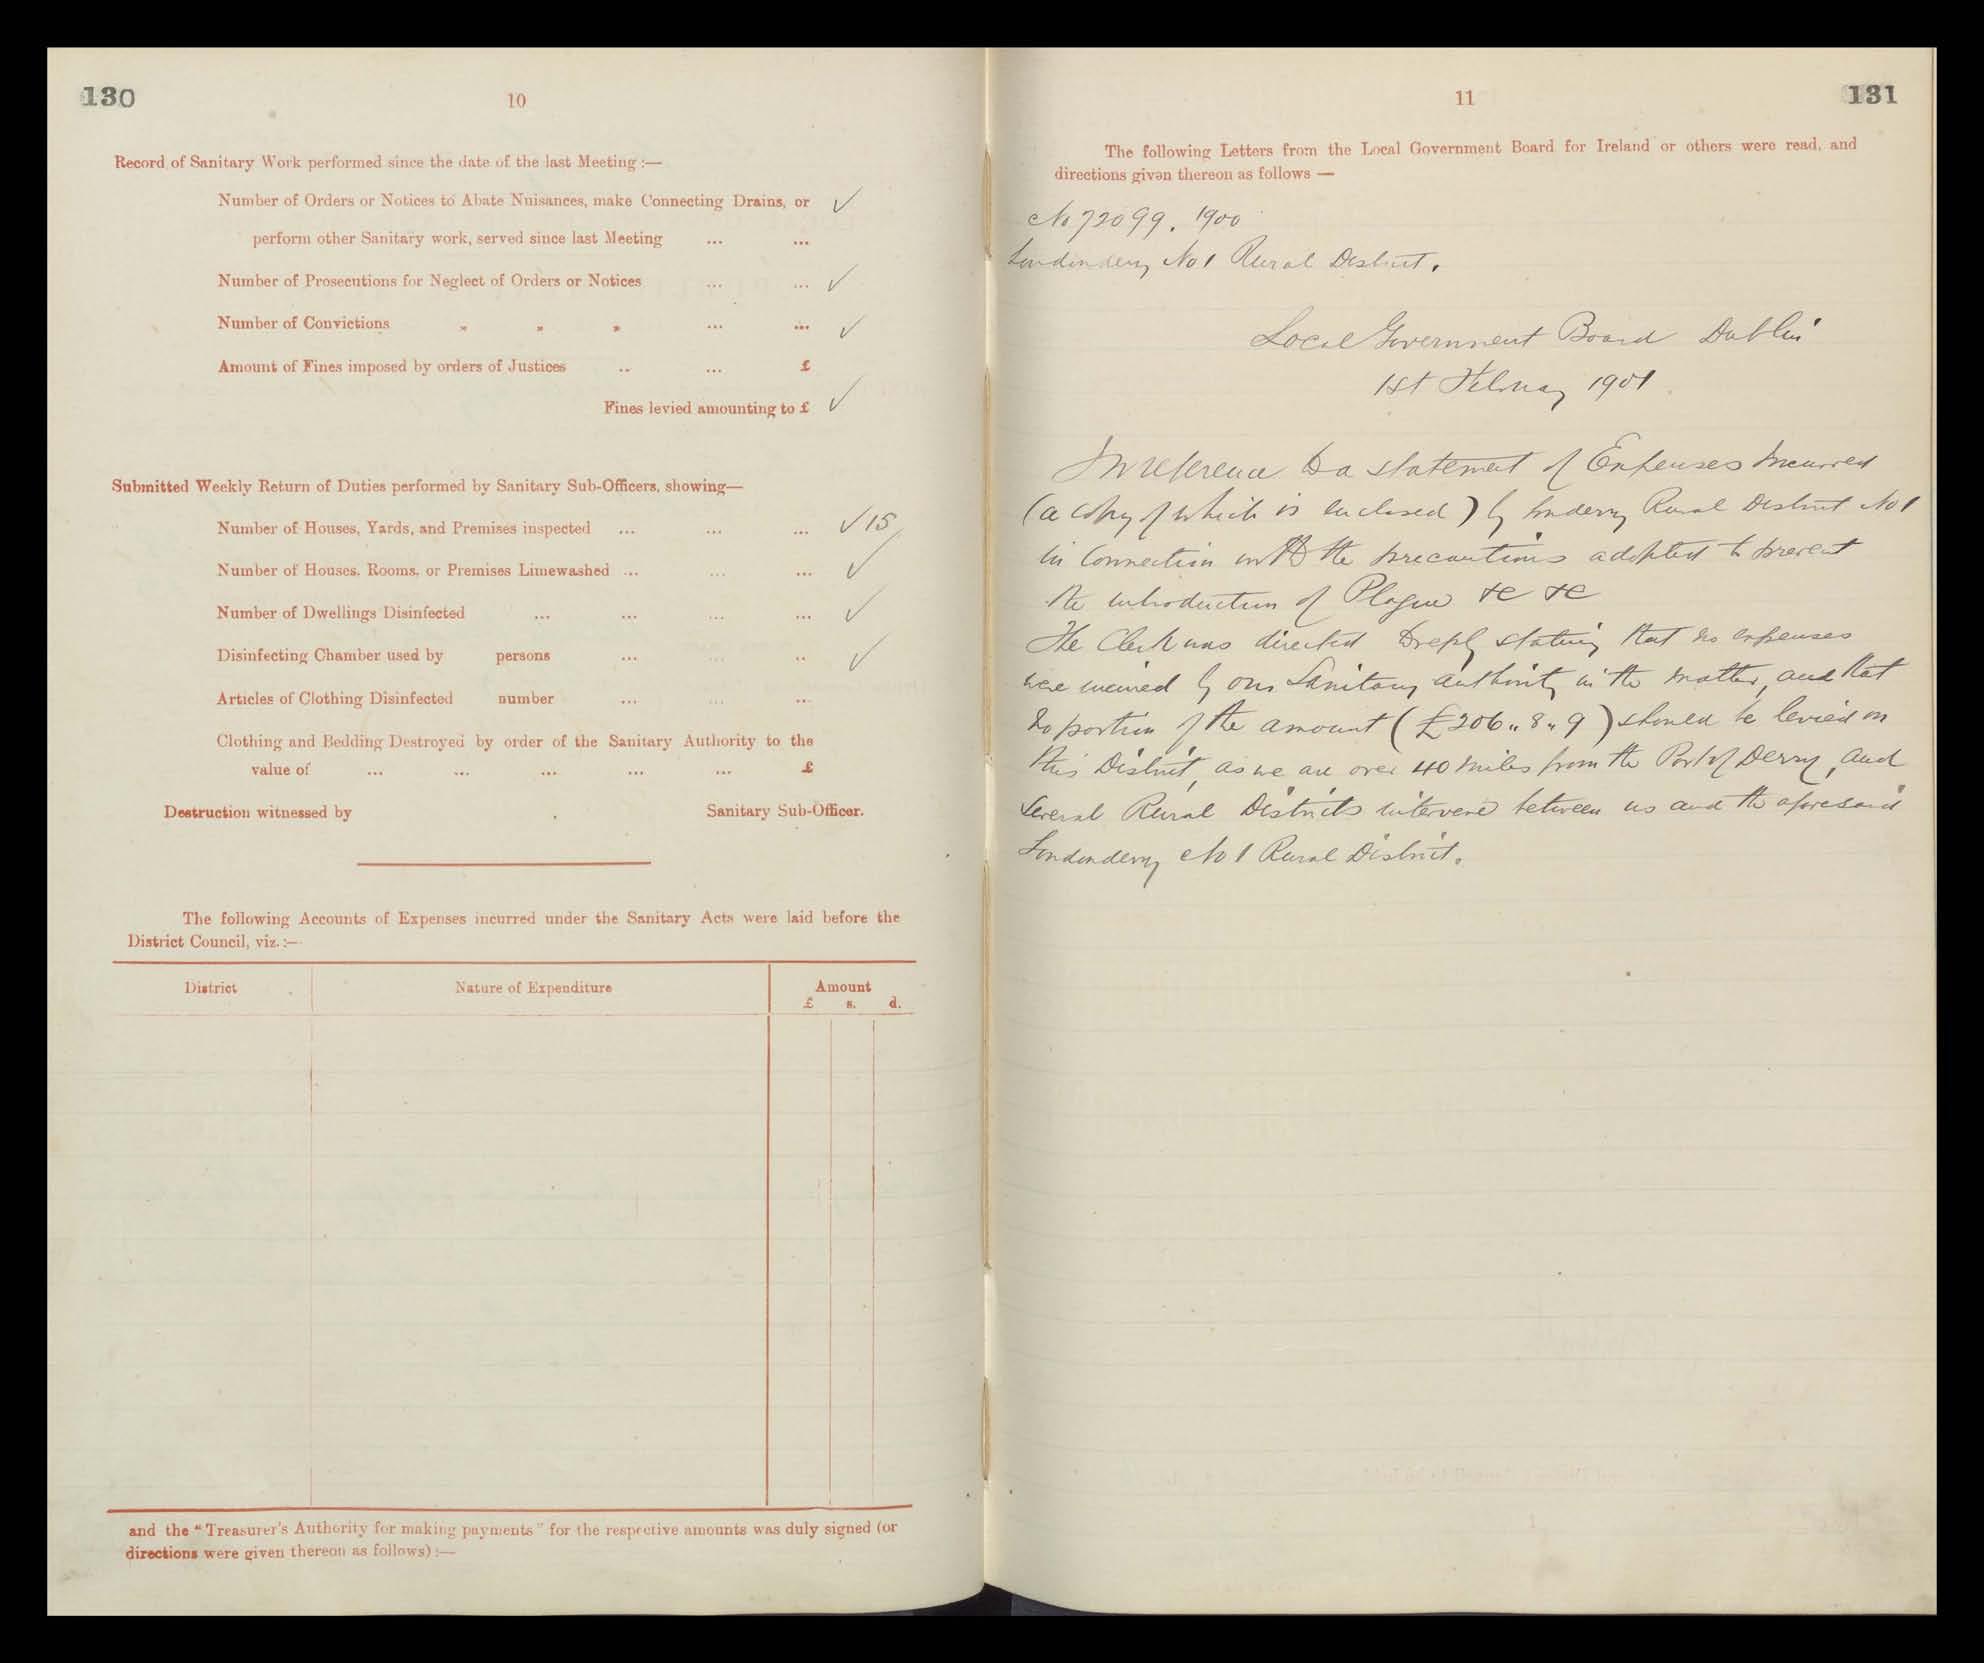 130
10
Record of Sanitary Work performed since the date of the last Meeting :—
Number of Orders or Notices to Abate Nuisances, make Connecting Drains, or ✓
perform other Sanitary work, served since last Meeting ... ...
Number of Prosecutions for Neglect of Orders or Notices ... ... ✓
Number of Convictions „ „ „ ... ... ✓
Amount of Fines imposed by orders of Justices .. ... £
Fines levied amounting to £ ✓
Submitted Weekly Return of Duties performed by Sanitary Sub-Officers, showing—
Number of Houses, Yards, and Premises inspected ... ... ... ✓ 15
Number of Houses, Rooms, or Premises Limewashed ... ... ... ✓
Number of Dwellings Disinfected ... ... ... ... ✓
Disinfecting Chamber used by persons ... ... .. ✓
Articles of Clothing Disinfected number ... ... ...
Clothing and Bedding Destroyed by order of the Sanitary Authority to the
value of ... ... ... ... ... £
Destruction witnessed by Sanitary Sub-Officer.
The following Accounts of Expenses incurred under the Sanitary Acts were laid before the
District Council, viz. :—
District Nature of Expenditure Amount
£ s. d.
and the "Treasurer's Authority for making payments" for the respective amounts was duly signed (or
directions were given thereon as follows) :—
11
131
The following Letters from the Local Government Board for Ireland or others were read, and
directions given thereon as follows —
No 72099. 1900
Londonderry No 1 Rural District.
Local Government Board Dublin
1st February 1901
In reference to a statement of Expenses incurred
(a copy of which is enclosed) by Londerry Rural District No 1
in connection with the precautions adopted to prevent
the introduction of Plague &c &c
The Clerk was directed to reply stating that no expenses
were incurred by our Sanitary authority in the matter, and that
no portion of the amount (£206 „ 8 „ 9) should be levied on
this District, as we are over 40 miles from the Port of Derry, and
several Rural Districts intervene between us and the aforesaid
Londonderry No 1 Rural District.